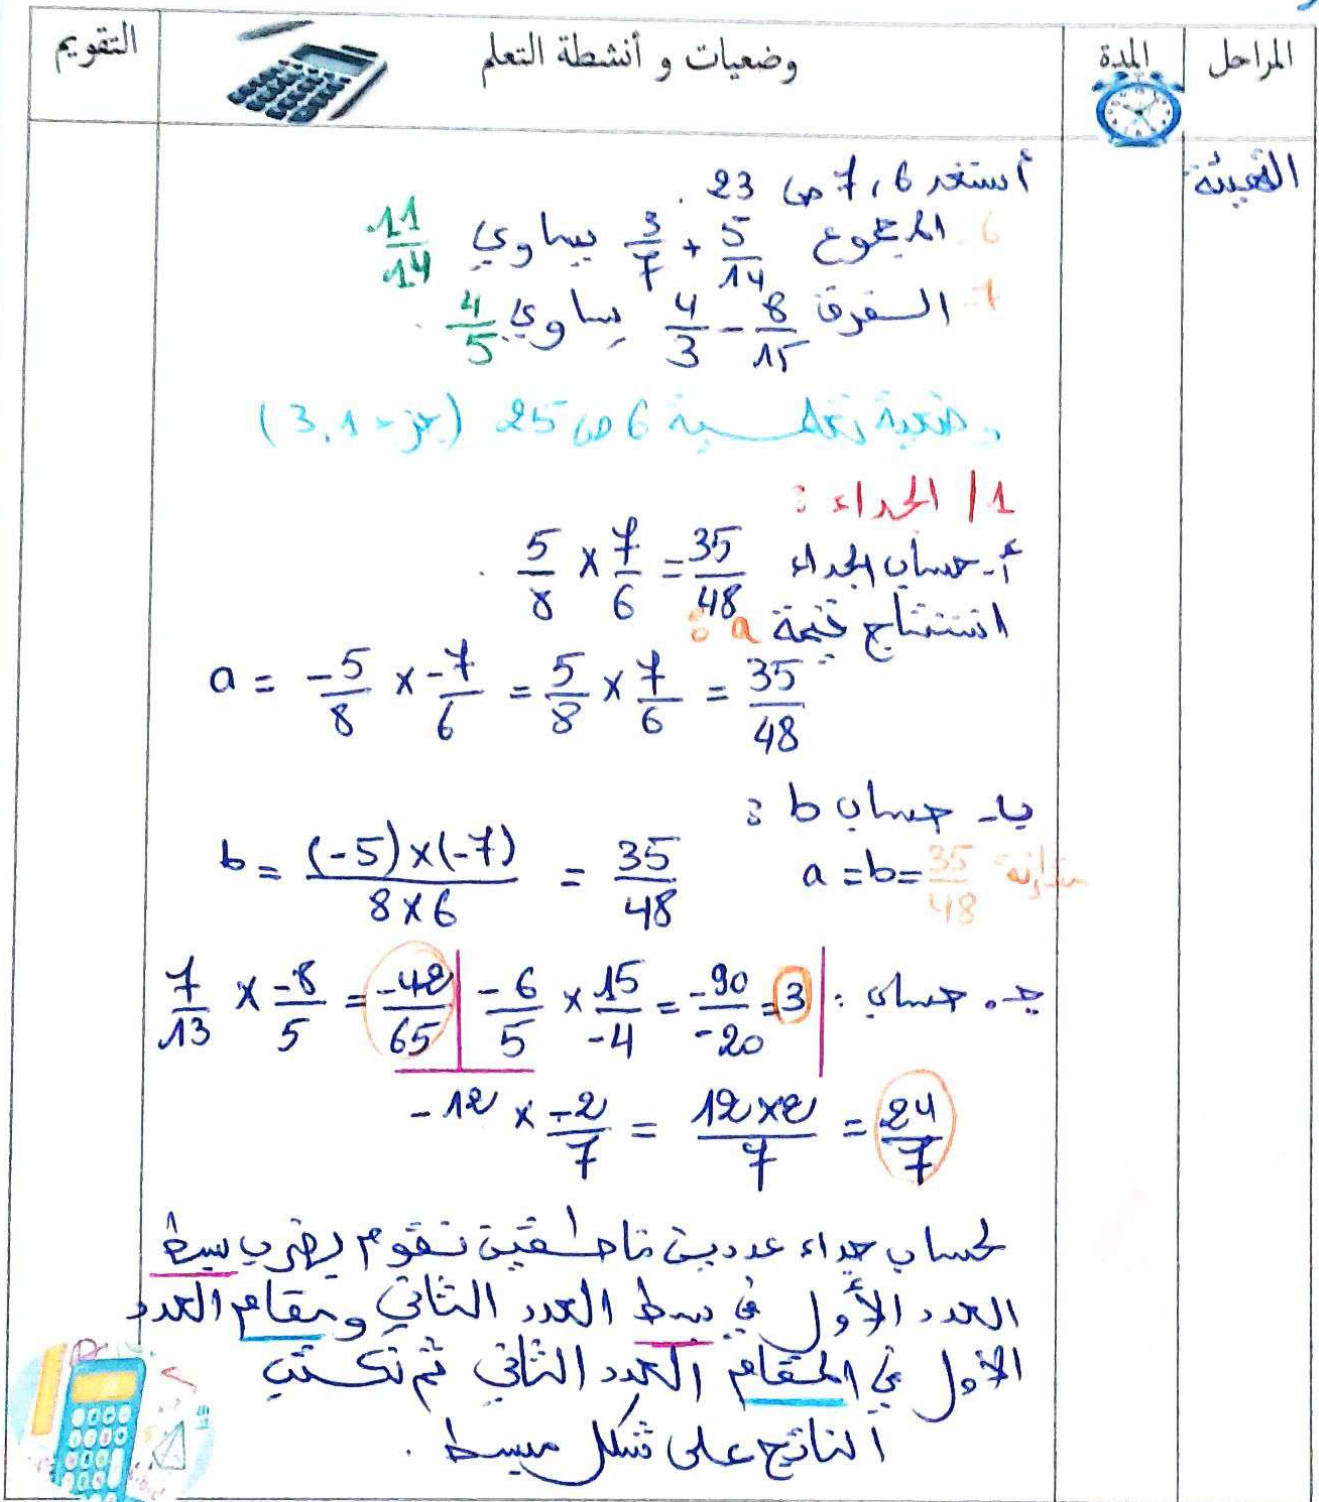 المراحل | المدة | وضعيات و أنشطة التعلم | التقويم
التهيئة
أستعد 6، 7 ص 23 .
6. المجموع 3/7 + 5/14 يساوي 11/14
7- الفرق 4/3 - 8/15 يساوي 4/5 .
وضعية تعلمية 6 ص 25 (جزء 3,1)
1/ الجداء :
أ- حساب الجداء 5/8 × 7/6 = 35/48 .
استنتاج قيمة a :
a = -5/8 × -7/6 = 5/8 × 7/6 = 35/48
ب- حساب b :
b = (-5)×(-7)/8×6 = 35/48
مقارنة a = b = 35/48
جـ. حساب : -6/5 × 15/-4 = -90/-20 = 3 | 7/13 × -8/5 = -42/65
-12 × -2/7 = 12×2/7 = 24/7
لحساب جداء عددين ناطقين نقوم بضرب بسط
العدد الأول في بسط العدد الثاني ومقام العدد
الأول في المقام العدد الثاني ثم نكتب
الناتج على شكل مبسط .